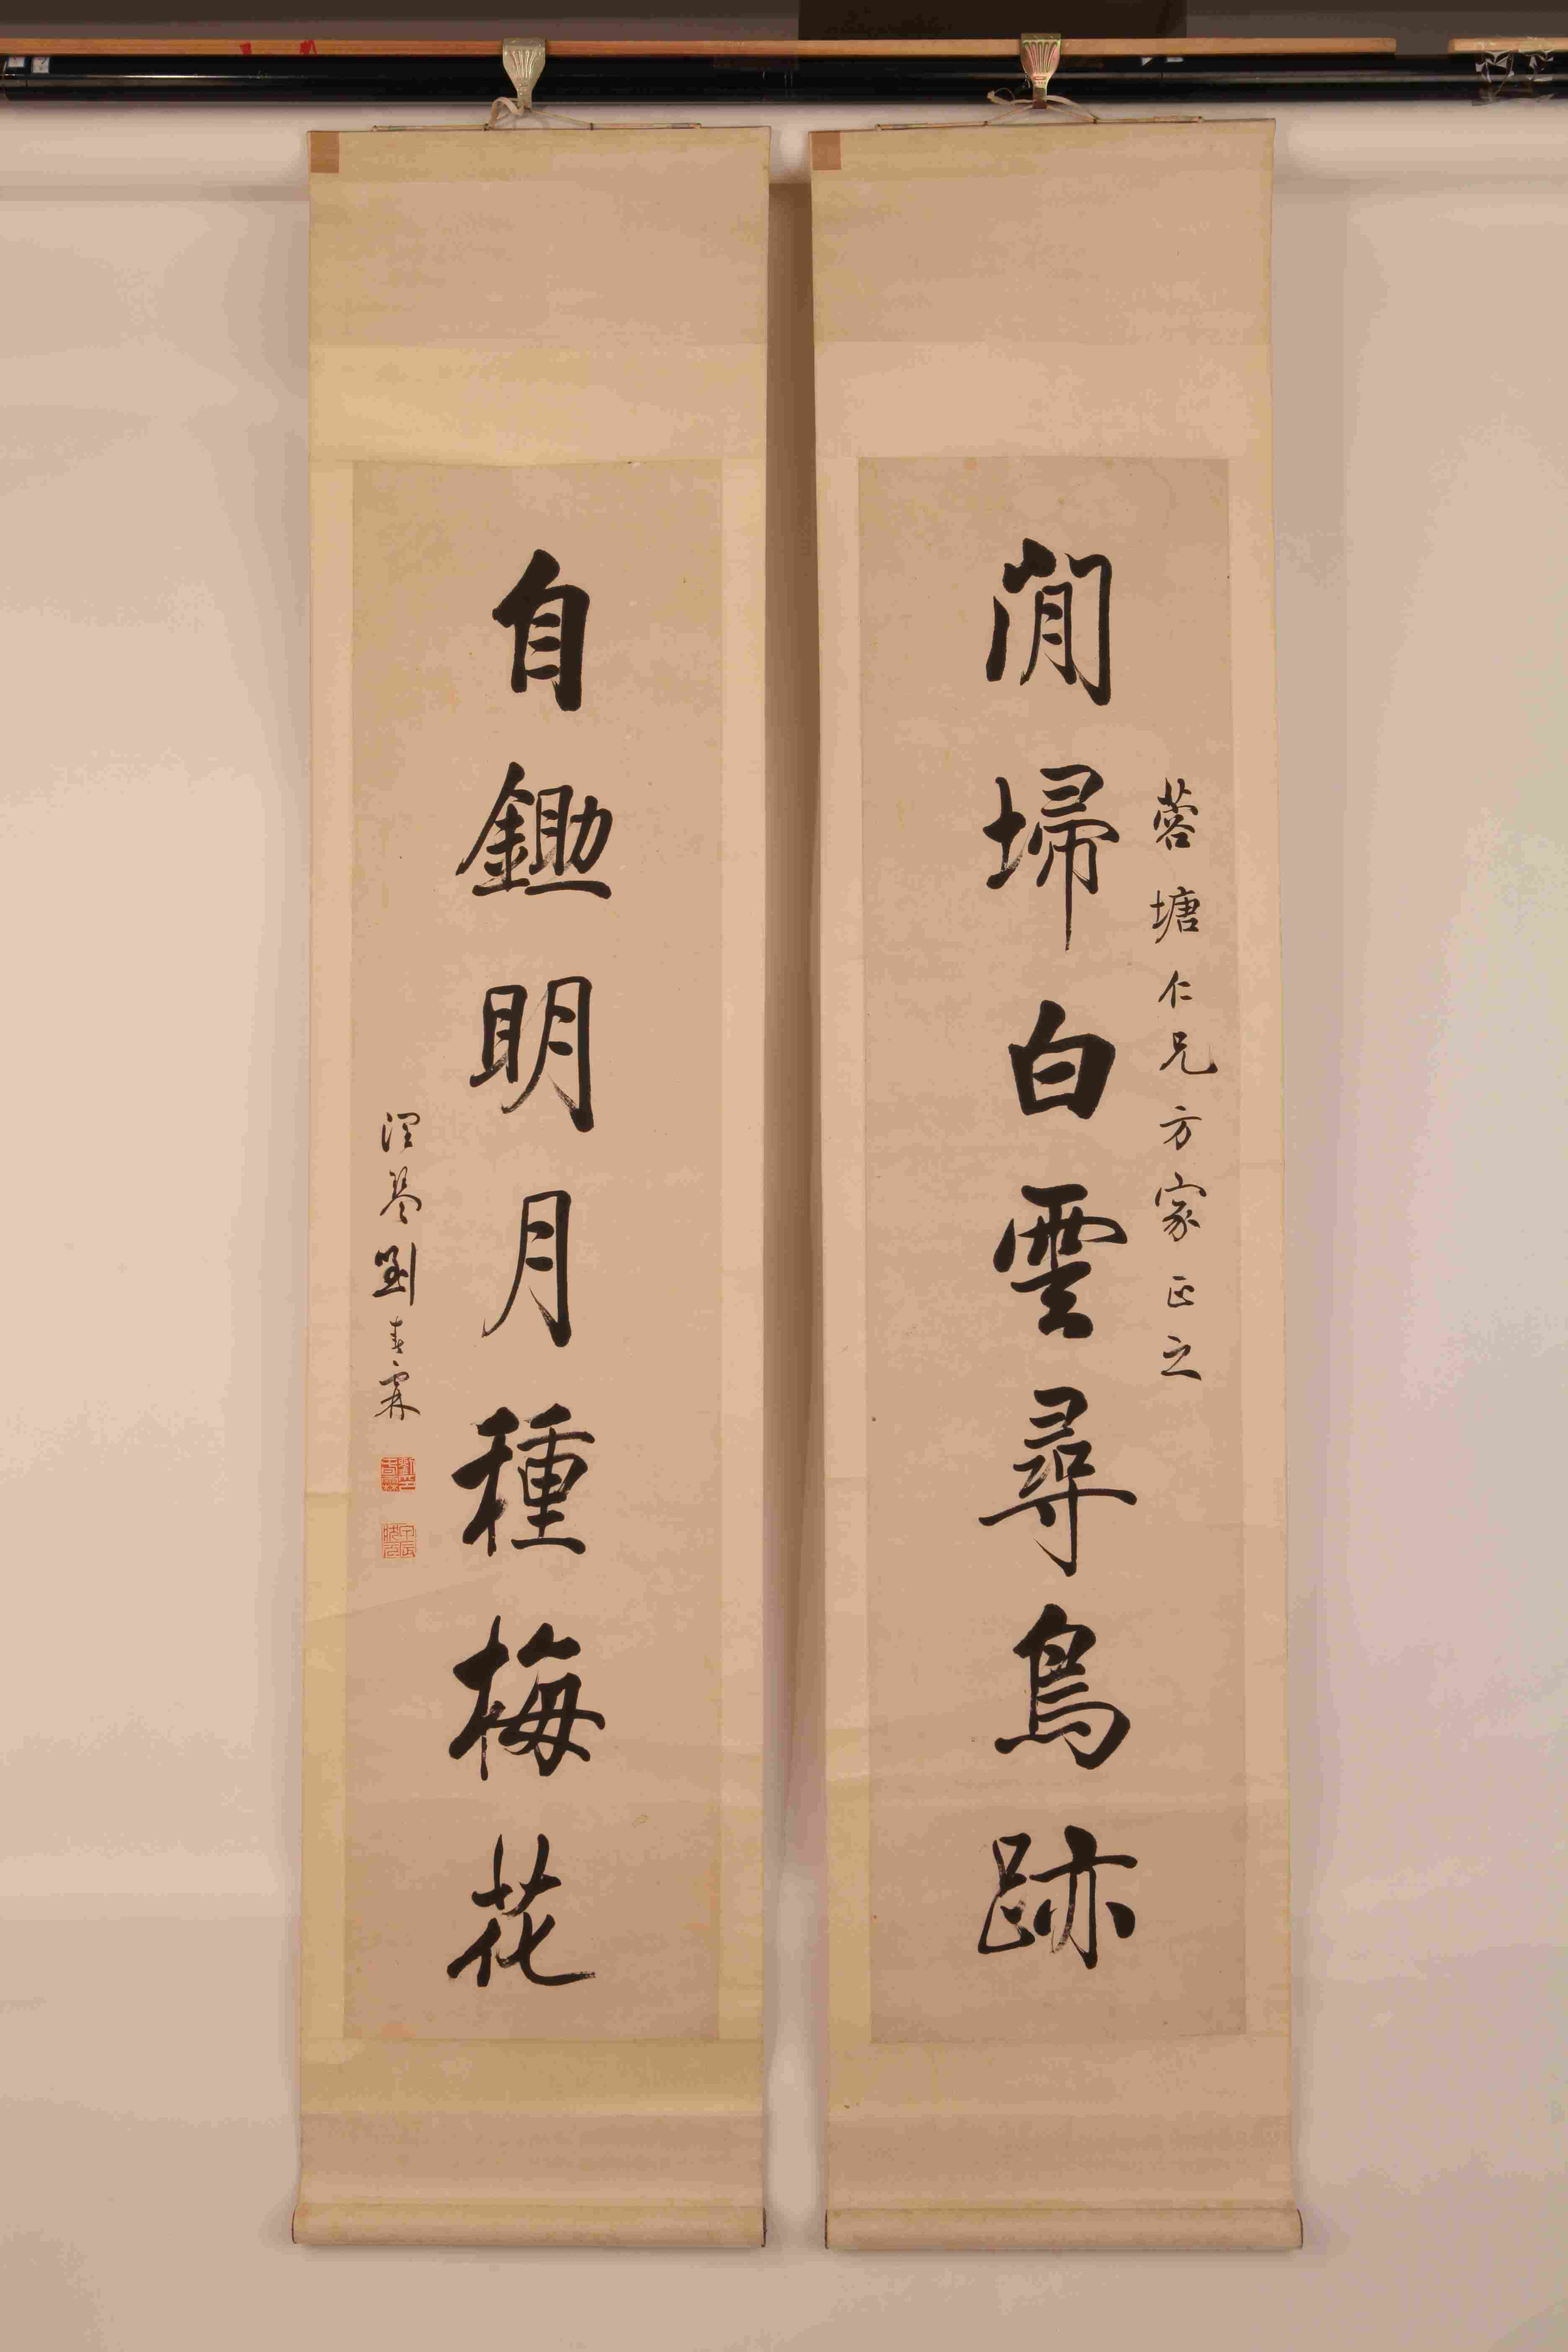 蓉塘仁兄方家正之
閒埽白雲尋鳥跡
自鋤明月種梅花
潤琴劉春霖